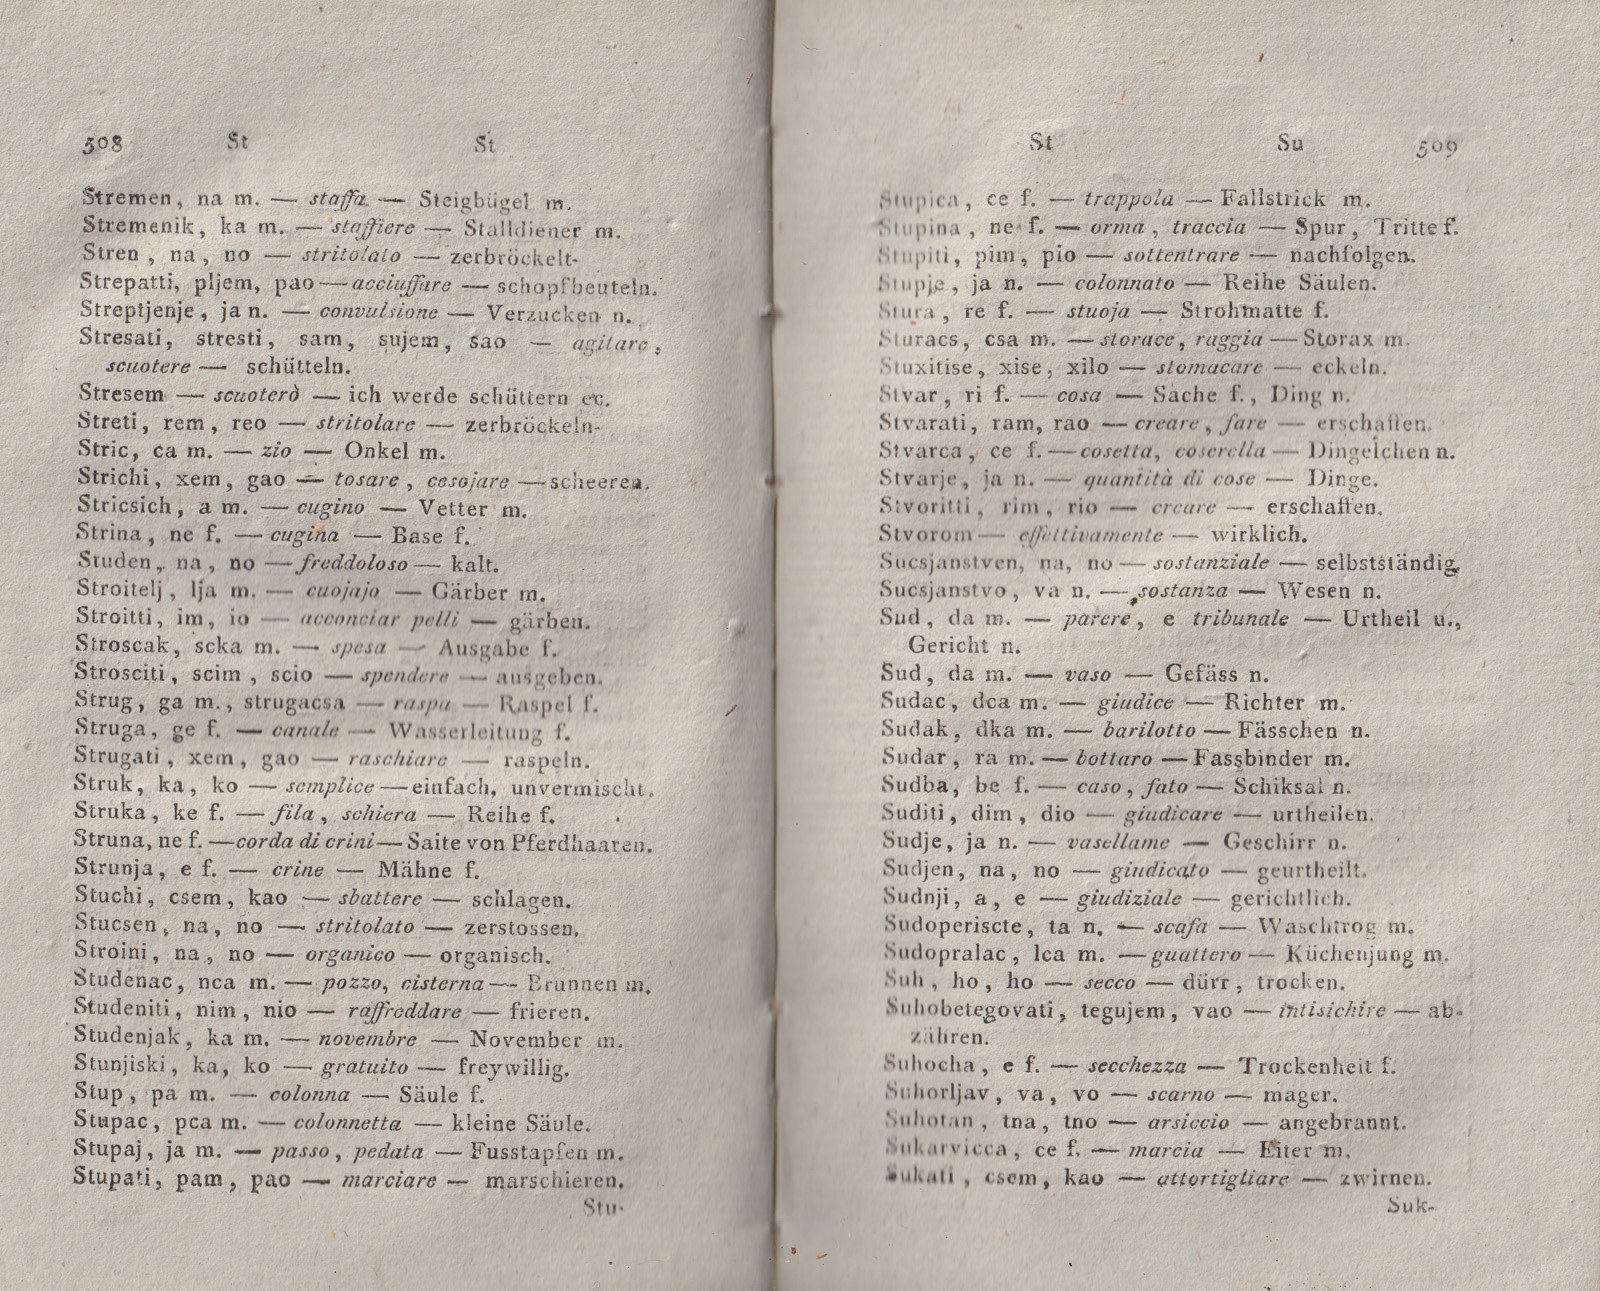 508 St St
Stremen, na m. — staffa — Steigbügel m.
Stremenik, ka m. — staffiere — Stalldiener m.
Stren, na, no — stritolato — zerbröckelt-
Strepatti, pljem, pao — acciuffare — schopfbeuteln.
Streptjenje, ja n. — convulsione — Verzucken n.
Stresati, stresti, sam, sujem, sao — agitare,
scuotere — schütteln.
Stresem — scuoterò — ich werde schüttern etc.
Streti, rem, reo — stritolare — zerbröckeln-
Stric, ca m. — zio — Onkel m.
Strichi, xem, gao — tosare, cesojare — scheeren.
Stricsich, a m. — cugino — Vetter m.
Strina, ne f. — cugina — Base f.
Studen, na, no — freddoloso — kalt.
Stroitelj, lja m. — cuojajo — Gärber m.
Stroitti, im, io — acconciar pelli — gärben.
Stroscak, scka m. — spesa — Ausgabe f.
Strosciti, scim, scio — spendere — ausgeben.
Strug, ga m., strugacsa — raspa — Raspel f.
Struga, ge f. — canale — Wasserleitung f.
Strugati, xem, gao — raschiare — raspeln.
Struk, ka, ko — semplice — einfach, unvermischt.
Struka, ke f. — fila, schiera — Reihe f.
Struna, ne f. — corda di crini — Saite von Pferdhaaren.
Strunja, e f. — crine — Mähne f.
Stuchi, csem, kao — sbattere — schlagen.
Stucsen, na, no — stritolato — zerstossen.
Stroini, na, no — organico — organisch.
Studenac, nca m. — pozzo, cisterna — Brunnen m.
Studeniti, nim, nio — raffreddare — frieren.
Studenjak, ka m. — novembre — November m.
Stunjiski, ka, ko — gratuito — freywillig.
Stup, pa m. — colonna — Säule f.
Stupac, pca m. — colonnetta — kleine Säule.
Stupaj, ja m. — passo, pedata — Fusstapfen m.
Stupati, pam, pao — marciare — marschieren.
Stu-
St Su 509
Stupica, ce f. — trappola — Fallstrick m.
Stupina, ne f. — orma, traccia — Spur, Tritte f.
Stupiti, pim, pio — sottentrare — nachfolgen.
Stupje, ja n. — colonnato — Reihe Säulen.
Stura, re f. — stuoja — Strohmatte f.
Sturacs, csa m. — storace, raggia — Storax m.
Stuxitise, xise, xilo — stomacare — eckeln.
Stvar, ri f. — cosa — Sache f., Ding n.
Stvarati, ram, rao — creare, fare — erschaffen.
Stvarca, ce f. — cosetta, coserella — Dingelchen n.
Stvarje, ja n. — quantità di cose — Dinge.
Stvoritti, rim, rio — creare — erschaffen.
Stvorom — effettivamente — wirklich.
Sucsjanstven, na, no — sostanziale — selbstständig.
Sucsjanstvo, va n. — sostanza — Wesen n.
Sud, da m. — parere, e tribunale — Urtheil u.,
Gericht n.
Sud, da m. — vaso — Gefäss n.
Sudac, dca m. — giudice — Richter m.
Sudak, dka m. — barilotto — Fässchen n.
Sudar, ra m. — bottaro — Fassbinder m.
Sudba, be f. — caso, fato — Schiksal n.
Suditi, dim, dio — giudicare — urtheilen.
Sudje, ja n. — vasellame — Geschirr n.
Sudjen, na, no — giudicato — geurtheilt.
Sudnji, a, e — giudiziale — gerichtlich.
Sudoperiscte, ta n. — scafa — Waschtrog m.
Sudopralac, lca m. — guattero — Küchenjung m.
Suh, ho, ho — secco — dürr, trocken.
Suhobetegovati, tegujem, vao — intisichire — ab-
zähren.
Suhocha, e f. — secchezza — Trockenheit f.
Suhorljav, va, vo — scarno — mager.
Suhotan, tna, tno — arsiccio — angebrannt.
Sukarvicca, ce f. — marcia — Eiter m.
Sukati, csem, kao — attortigliare — zwirnen.
Suk-